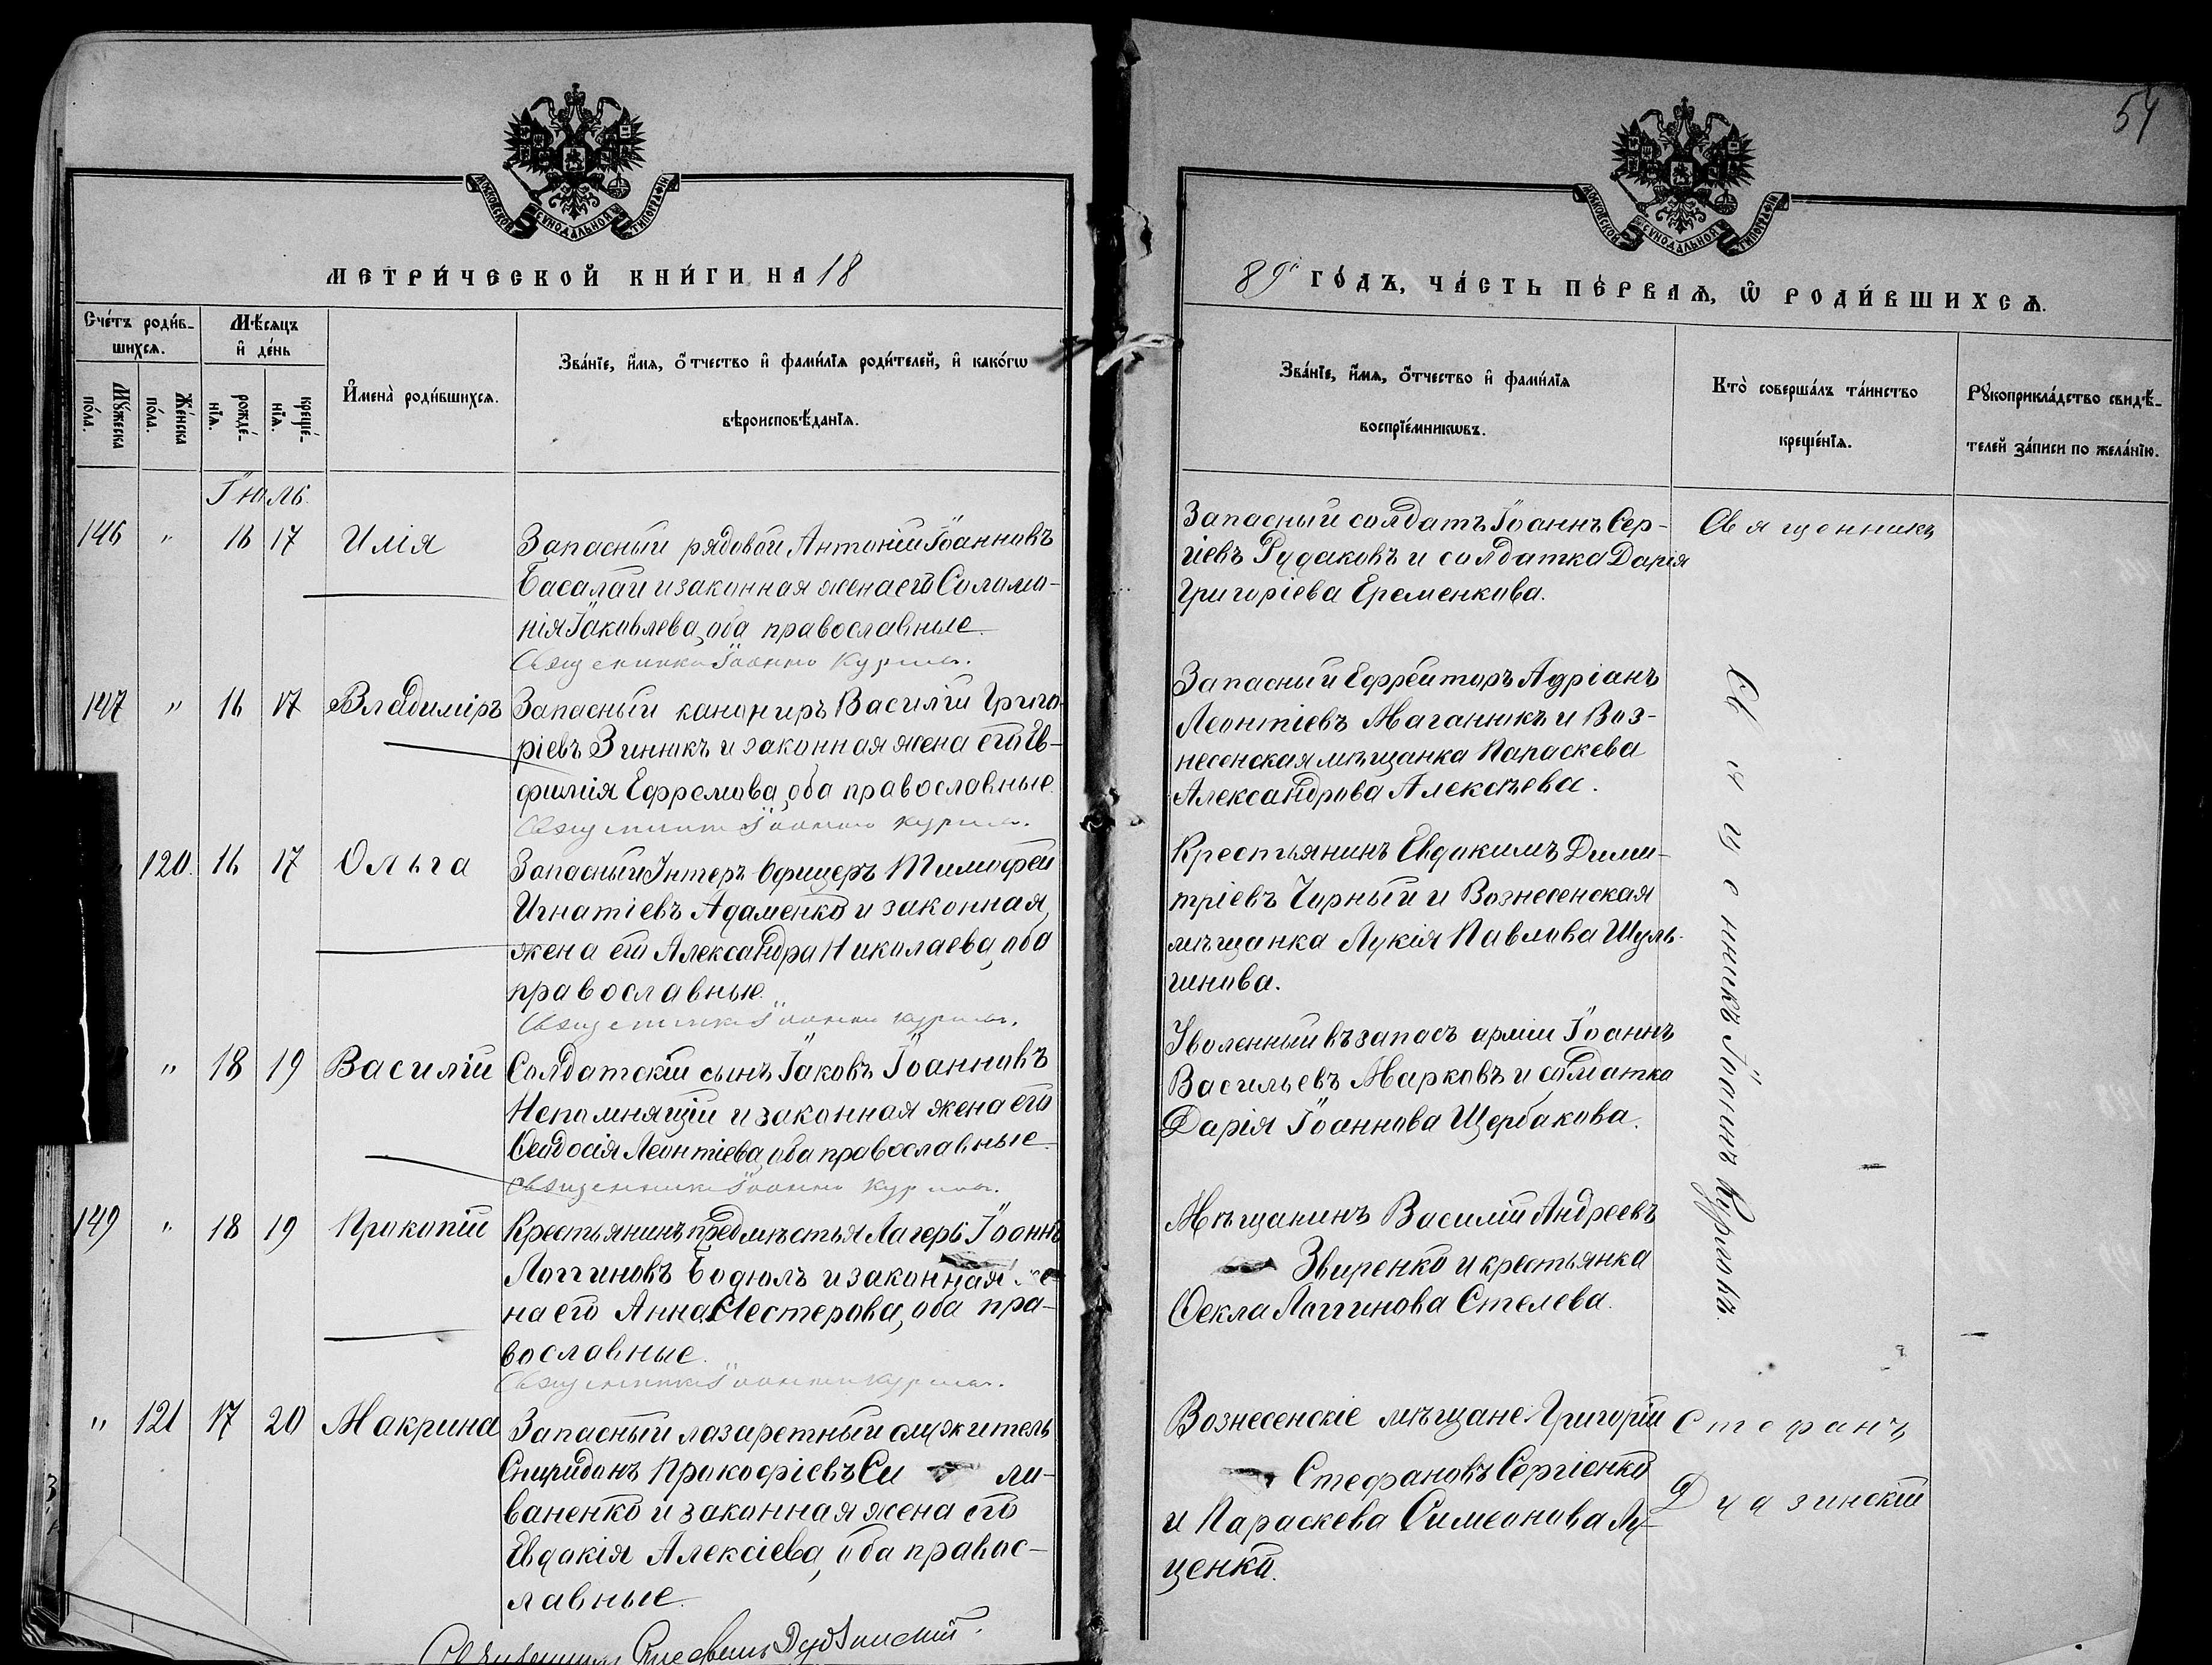 54
МОСКОВСКОЙ СѴНОДАЛЬНОЙ ТИПОГРАФІИ
МОСКОВСКОЙ СѴНОДАЛЬНОЙ ТИПОГРАФІИ
МЕТРИ́ЧЕСКОЙ КНИ́ГИ НА 18
89й ГО́ДЪ, ЧА́СТЬ ПЕ́РВАѦ, Ѡ҆ РОДИ́ВШИХСѦ.
Сче́тъ роди́в-
шихсѧ.
Мꙋ́жеска по́ла.
Же́нска по́ла.
Мѣ́сѧцъ
и҆ де́нь
рожде́-
нїѧ.
креще́-
нїѧ.
И҆мена̀ роди́вшихсѧ.
Зва́нїе, и҆́мѧ, ѻ҆́тчество и҆ фами́лїѧ роди́телей, и҆ како́гѡ
вѣроисповѣ́данїѧ.
Зва́нїе, и҆́мѧ, ѻ҆́тчество и҆ фами́лїѧ
воспрїе́мникѡвъ.
Кто̀ соверша́лъ та́инство
креще́нїѧ.
Рꙋкоприкла́дство свидѣ́-
телей за́писи по жела́нїю.
Іюль.
146 " 16 17 Илія
Запасный рядовой Антоній Іоанновъ
Басалай и законная жена его Соломо-
нія Іаковлева, оба православные.
Священникъ Іоаннъ Курловъ.
Запасный солдатъ Іоаннъ Сер-
гіевъ Рудаковъ и солдатка Дарія
Григоріева Еременкова.
Священникъ
147 " 16 17 Владиміръ
Запасный канониръ Василій Григо-
ріевъ Зинюкъ и законная жена его Ев-
фимія Ефремова, оба православные.
Священникъ Іоаннъ Курловъ.
Запасный Ефрейторъ Адріанъ
Леонтіевъ Маганюкъ и Воз-
несенская мѣщанка Параскева
Александрова Алексѣева.
Священникъ Іоаннъ Курловъ.
120. 16 17 Ольга
Запасный Унтеръ-Офицеръ Тимофей
Игнатіевъ Адаменко и законная
жена его Александра Николаева, оба
православные.
Священникъ Іоаннъ Курловъ.
Крестьянинъ Евдокимъ Дими-
тріевъ Чорный и Вознесенская
мѣщанка Лукія Павлова Шуль-
гинова.
" 18 19 Василій
Солдатскій сынъ Іаковъ Іоанновъ
Непомнящій и законная жена его
Ѳеодосія Леонтіева, оба православные.
Священникъ Іоаннъ Курловъ.
Уволенный въ запасъ арміи Іоаннъ
Васильевъ Марковъ и солдатка
Дарія Іоаннова Щербакова.
149 " 18 19 Прокопій
Крестьянинъ предмѣстья Лагерь Іоаннъ
Логгиновъ Бодюлъ и законная же-
на его Анна Нестерова, оба пра-
вославные.
Священникъ Іоаннъ Курловъ.
Мѣщанинъ Василій Андреевъ
Звиренко и крестьянка
Ѳекла Логгинова Стелева.
" 121 17 20 Макрина
Запасный лазаретный служитель
Спиридонъ Прокофіевъ Си ли-
ваненко и законная жена его
Евдокія Алексіева, оба правос-
лавные.
Вознесенскіе мѣщане: Григорій
Стефановъ Сергіенко
и Параскева Симеонова Лу-
ценко.
Стефанъ